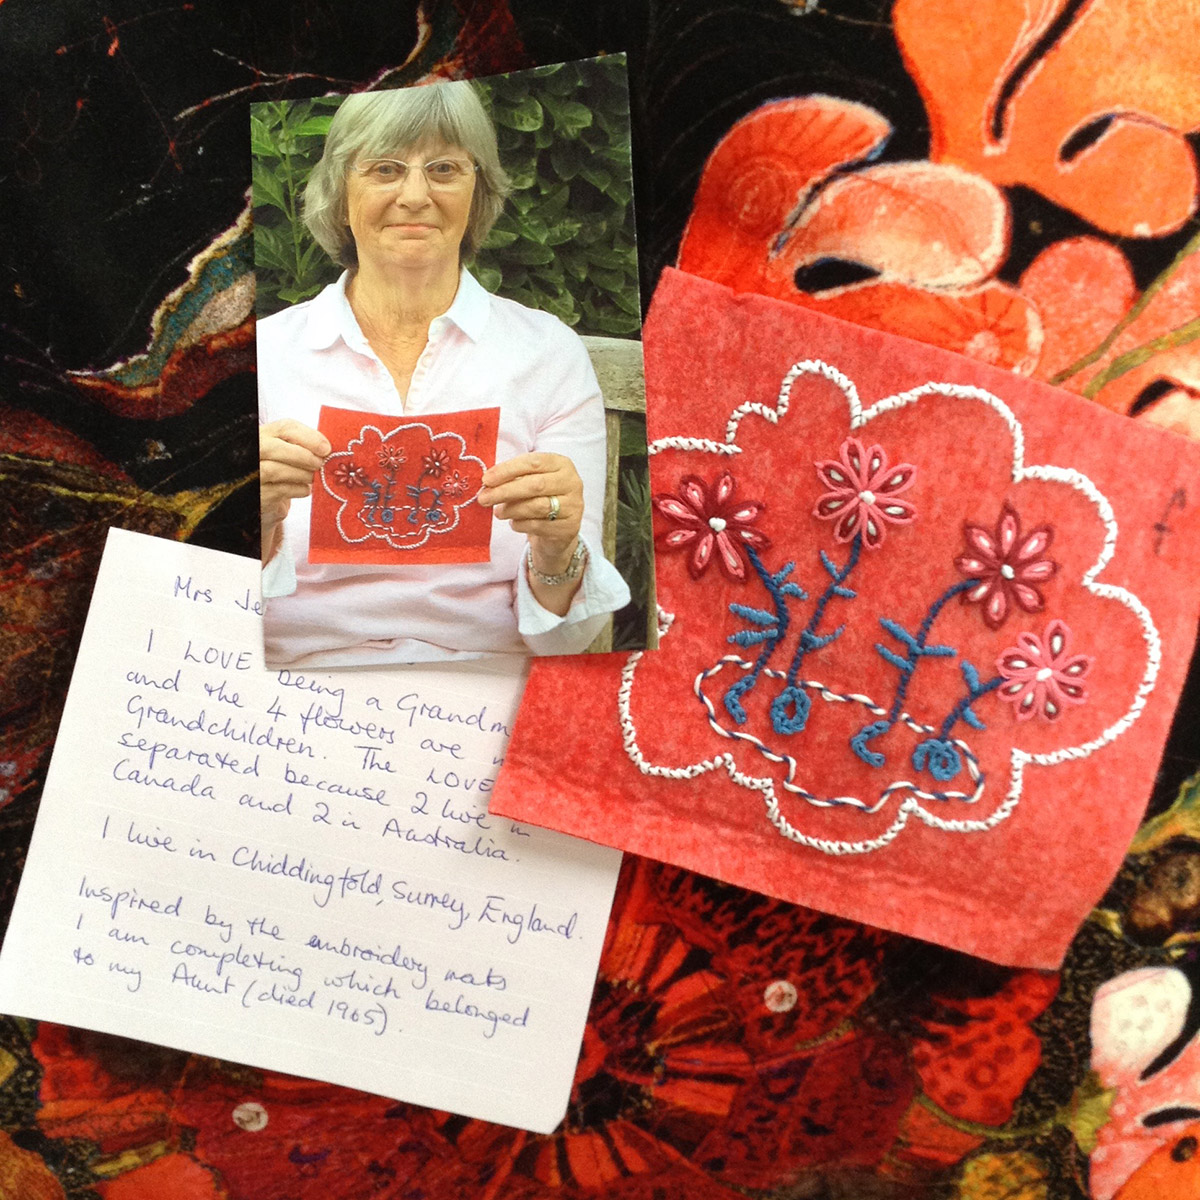 Mrs Je
I LOVE being a Grandm
and the 4 flowers are
Grandchildren. The LOVE
separated because 2 live in
Canada and 2 in Australia.
I live in Chiddingfold, Surrey, England.
Inspired by the embroidery mats
I am completing which belonged
to my Aunt (died 1965).